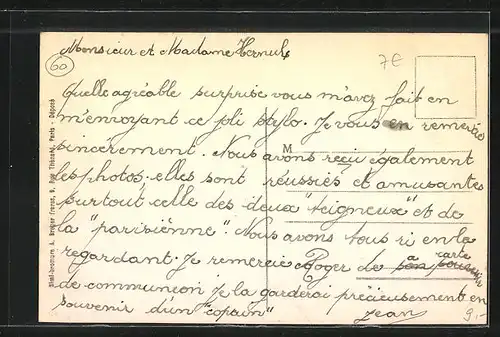 Monsieur et Madame
60
7€
Quelle agréable surprise vous m'avez fait en
m'envoyant ce joli stylo. Je vous en remercie
sincèrement. Nous avons reçu également
M
les photos. elles sont réussies et amusantes
surtout celle des deux "teigneux" et de
la "parisienne". Nous avons tous ri en la
regardant. Je remercie Roger de sa carte
de communion je la garderai précieusement en
souvenir d'un "copain" Jean
9.-
Simili-Bromure A. Breger Frères, 9, Rue Thénard, Paris - Déposé